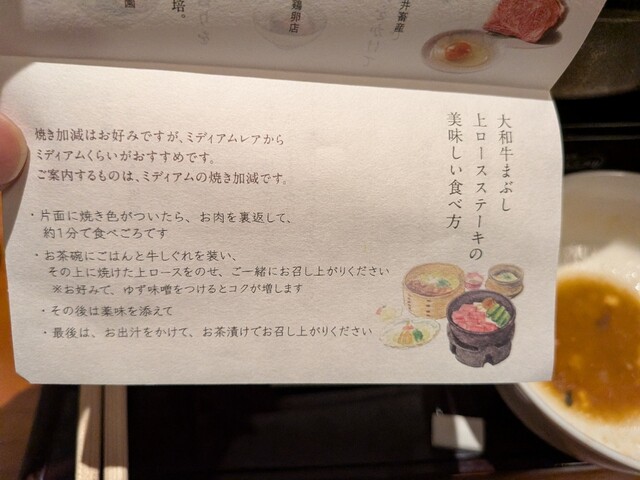 園
培。
鶏卵店
井畜産
大和牛まぶし
上ロースステーキの
美味しい食べ方
焼き加減はお好みですが、ミディアムレアから
ミディアムくらいがおすすめです。
ご案内するものは、ミディアムの焼き加減です。
・片面に焼き色がついたら、お肉を裏返して、
約1分で食べごろです
・お茶碗にごはんと牛しぐれを装い、
その上に焼けた上ロースをのせ、ご一緒にお召し上がりください
※お好みで、ゆず味噌をつけるとコクが増します
・その後は薬味を添えて
・最後は、お出汁をかけて、お茶漬けでお召し上がりください